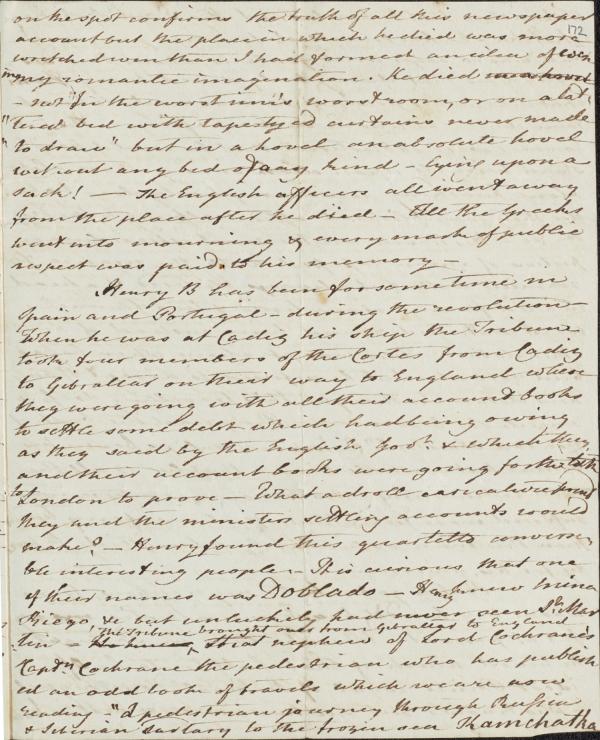 on the spot confirms the truth of all this newspaper
172
account but the place in which he died was more
wretched even than I had formed an idea of even
in my romantic imagination. He died in a hovel
- not "In the worst inn's worst room, or on a tat-
"tered bed with tapetyed curtains never made
"to draw" but in a hovel an absolute hovel
without any bed of any kind - lying upon a
sack! — The English officers all went away
from the place after he died - All the Greeks
went into mourning & every mark of public
respect was paid to his memory -
Henry B has been for sometime in
Spain and Portugal - during the revolution
When he was at Cadiz his ship the Tribune
took four members of the Cortes from Cadiz
to Gibraltar on their way to England where
they were going with all their account books
to settle some debt which had being owing
as they said by the English Govt. & which they
and their account books were going forth
to London to prove - What a droll caricature print
they and the ministers settling accounts would
make? - Henry found this quartetto conversi-
ble interesting people - It is curious that one
of their names was Doblado - Henry knew Mina
Riego, &c but unluckily had never seen Sn. Mar
tin - The Tribune brought over from Gibraltar to England
that nephew of Lord Cochrane's
Captn. Cochrane the pedestrian who has publish
ed an odd book of travels which we are now
reading - "A pedestrian journey through Russia
& Siberian Tartary to the frozen sea Kamchatka